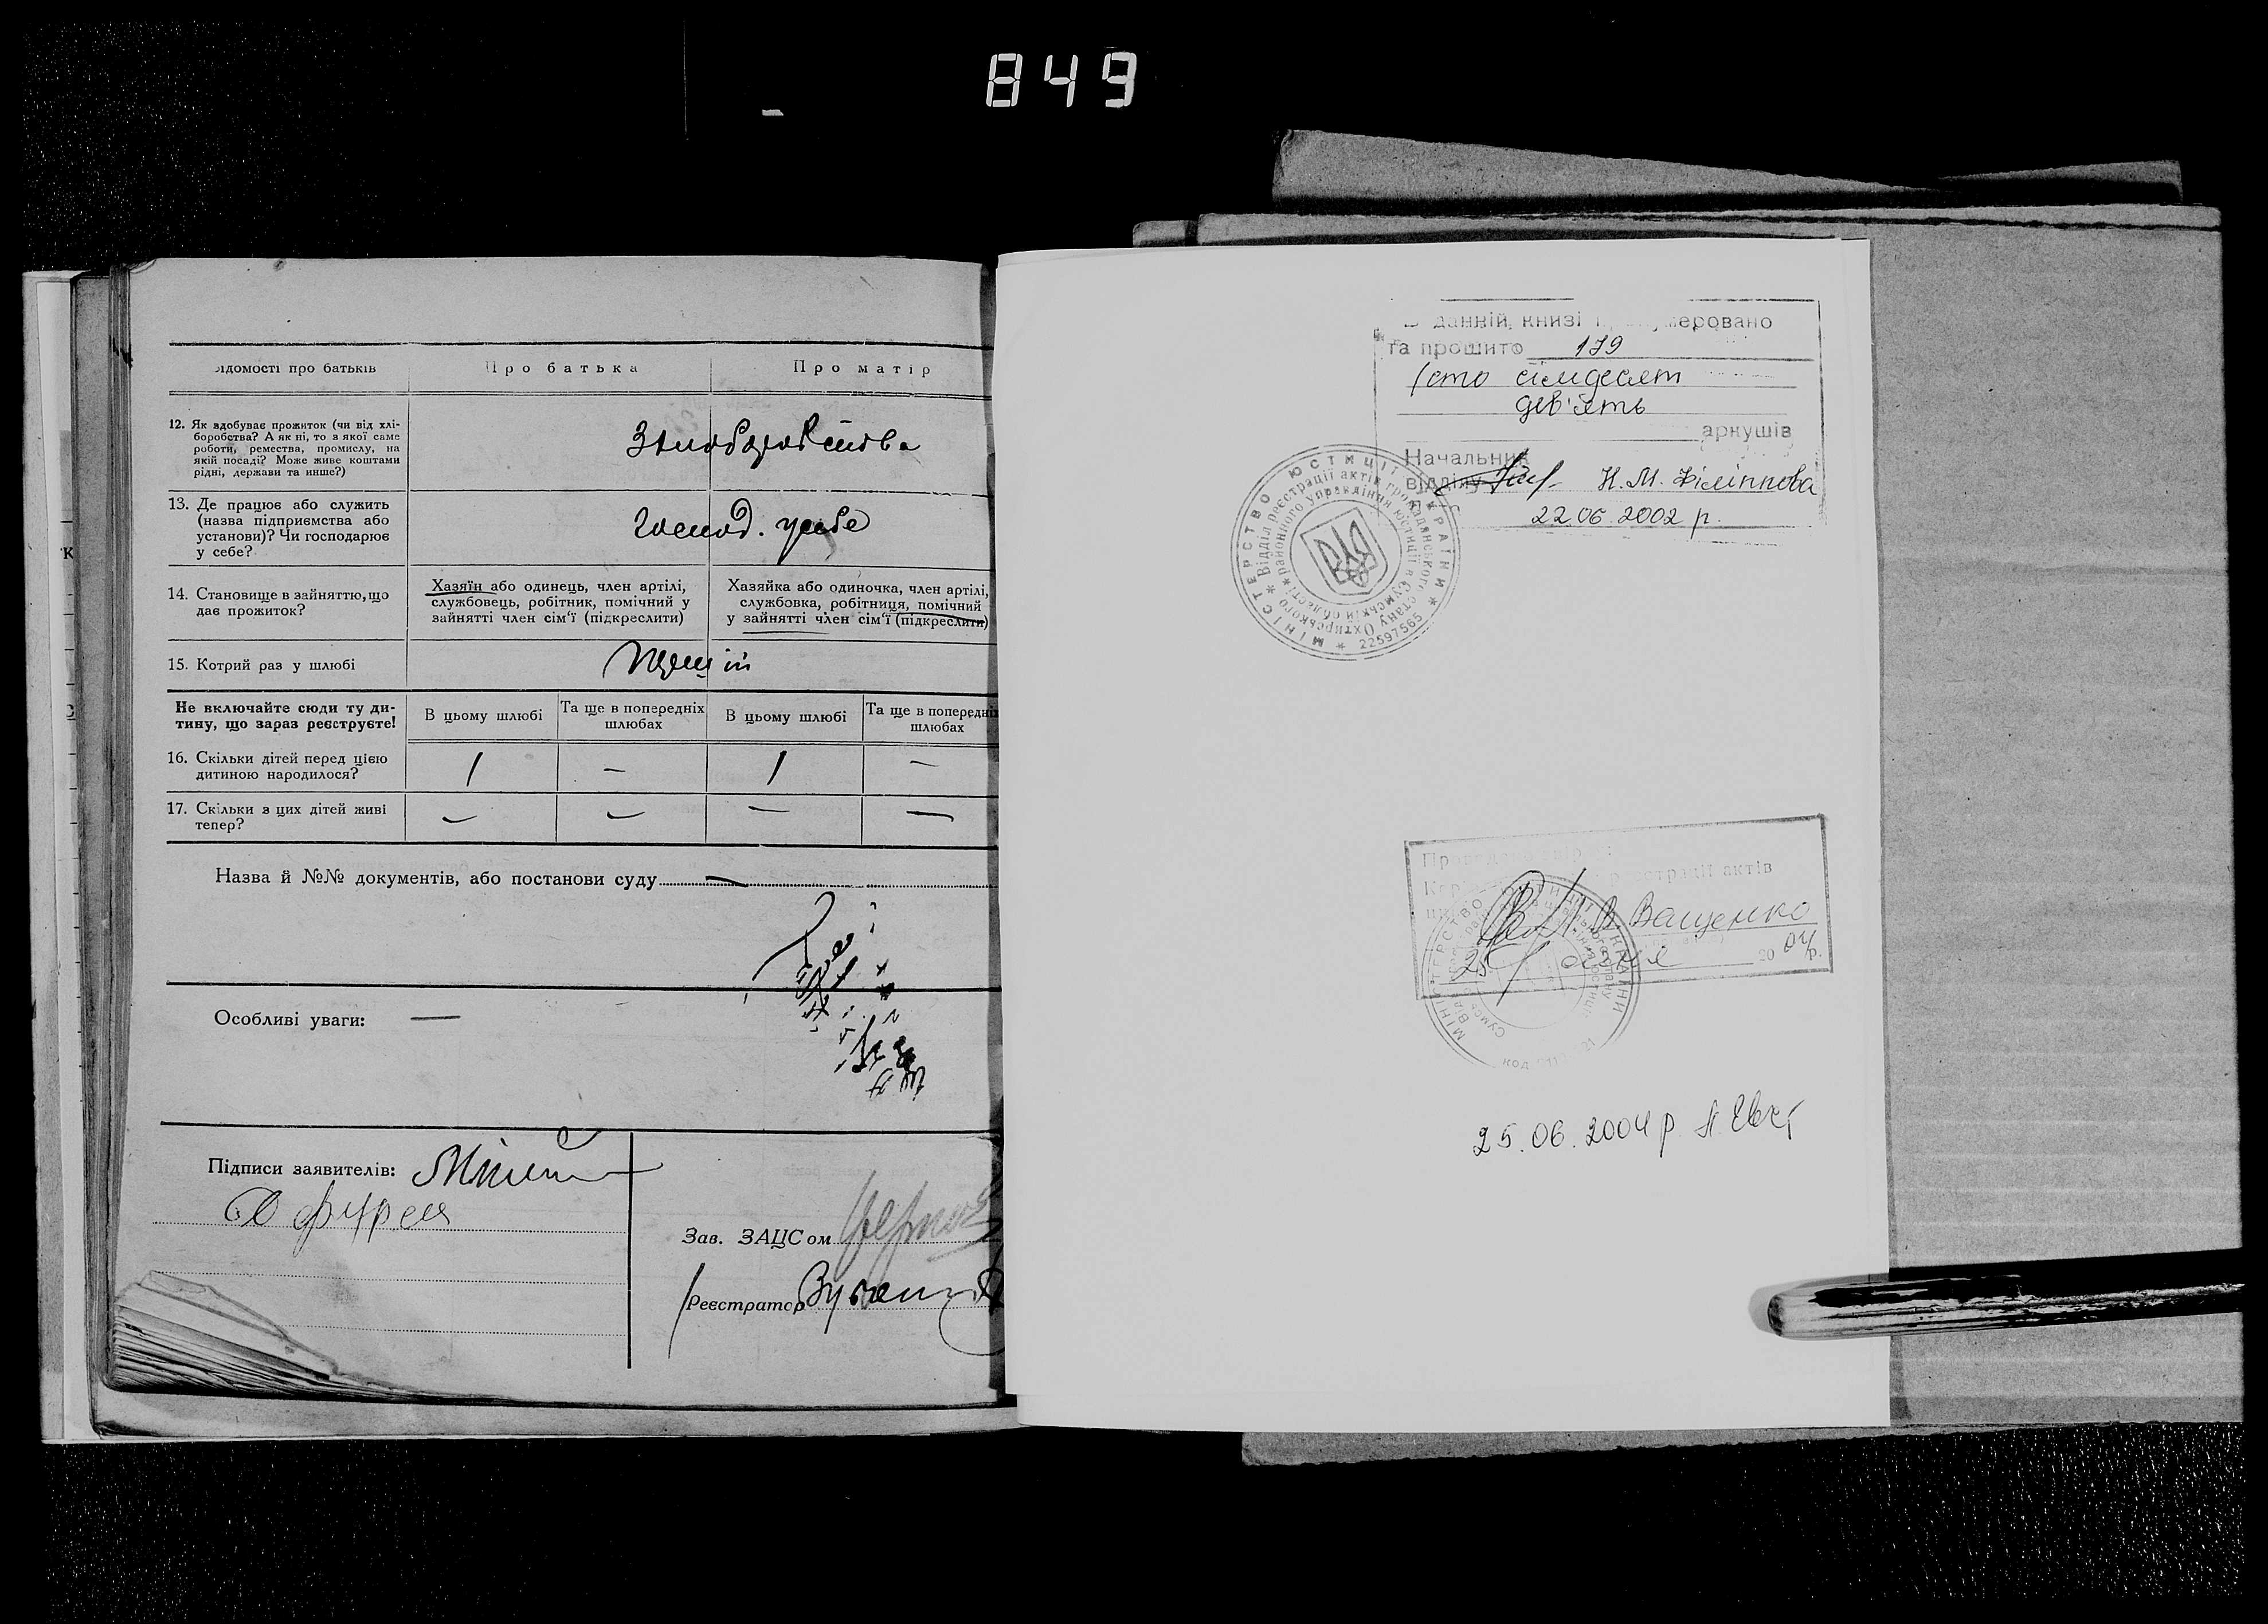 849
Відомості про батьків
Про батька
Про матір
12. Як здобуває прожиток (чи від хлі-
боробства? А як ні, то з якої саме
роботи, ремества, промислу, на
якій посаді? Може живе коштами
рідні, держави та инше?)
З хлоборобства
13. Де працює або служить
(назва підприємства або
установи)? Чи господарює
у себе?
Господ. у себе
14. Становище в зайняттю, що
дає прожиток?
Хазяїн або одинець, член артілі,
службовець, робітник, помічний у
зайнятті член сім'ї (підкреслити)
Хазяйка або одиночка, член артілі,
службовка, робітниця, помічний
у зайнятті член сім'ї (підкреслити)
15. Котрий раз у шлюбі
Перший
Не включайте сюди ту ди-
тину, що зараз реєструєте!
В цьому шлюбі
Та ще в попередніх
шлюбах
В цьому шлюбі
Та ще в попередніх
шлюбах
16. Скільки дітей перед цією
дитиною народилося?
1 — 1 —
17. Скільки з цих дітей живі
тепер?
— — — —
Назва й №№ документів, або постанови суду —
Особливі уваги: —
Підписи заявителів:
Зав. ЗАЦСом
Реєстратор
В данній книзі пронумеровано
та прошито 179
(сто сімдесят
дев'ять
аркушів
Начальник
відділу Н. М. Філіппова
22.06.2002 р.
МІНІСТЕРСТВО ЮСТИЦІЇ УКРАЇНИ
Відділ реєстрації актів громадянського стану Охтирського
районного управління юстиції в Сумській області
22597565
реєстрації актів
В. Ващенко
25 2004р.
МІНІСТЕРСТВО ЮСТИЦІЇ УКРАЇНИ
25.06.2004 р